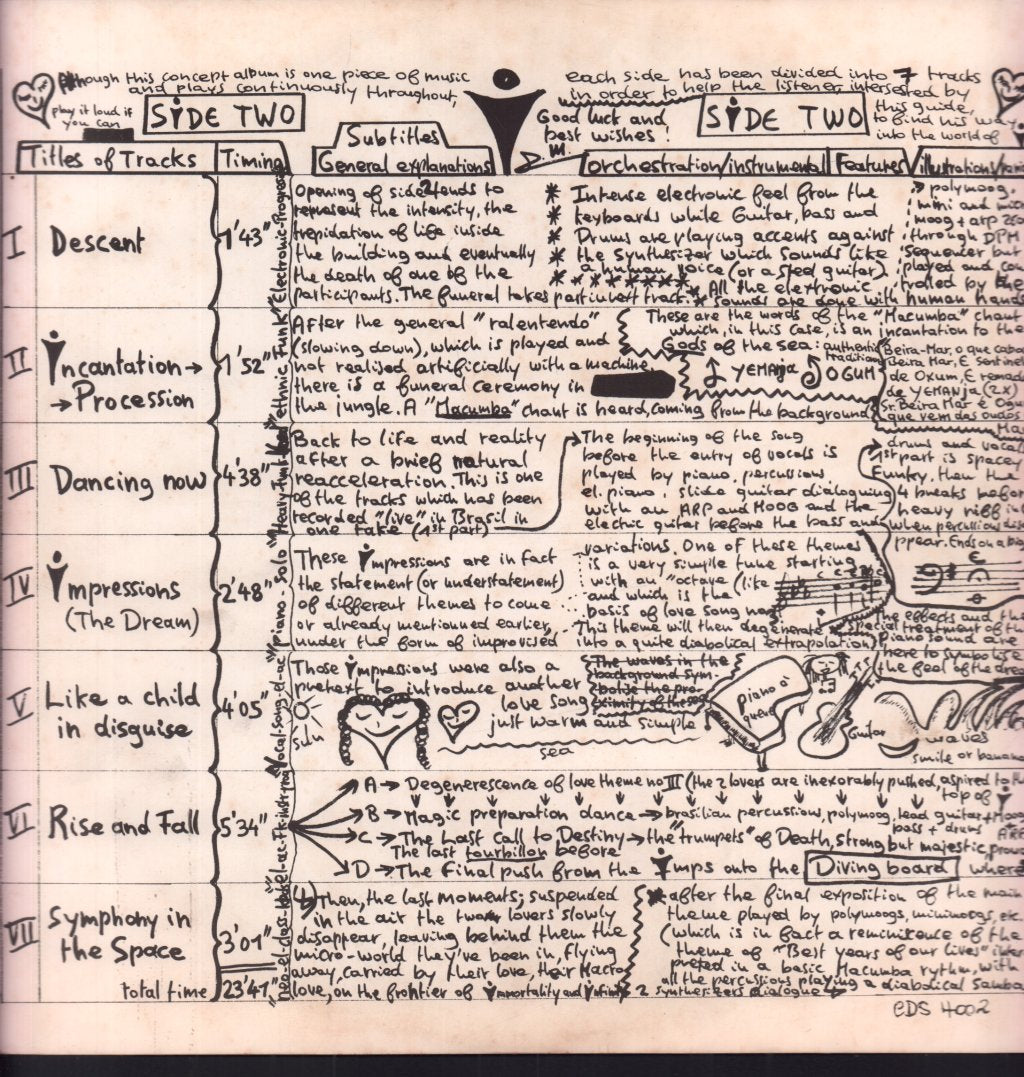 Although this concept album is one piece of music
and plays continuously throughout,
each side has been divided into 7 tracks
in order to help the listener, interested by
this guide,
to find his way
into the world of
play it loud if
you can
SiDE TWO
Good luck and
best wishes!
SiDE TWO
Titles of Tracks
Timing
Subtitles
General explanations
orchestration/instrumental
Features
I
Descent
1'43"
Opening of side 2 tends to
represent the intensity, the
trepidation of life inside
the building and eventually
the death of one of the
participants. The funeral takes part in next track.
* Intense electronic feel from the
* keyboards while Guitar, bass and
* Drums are playing accents against
* the synthesizer which sounds like
a human voice (or a steel guitar)
* All the electronic
* sounds are done with human hands
polymoog,
moog + arp
through DPM
sequencer but
played and
trolled by the
II
incantation →
→ Procession
1'52"
After the general "ralentendo"
(slowing down), which is played and
not realised artificially with a machine,
there is a funeral ceremony in
the jungle. A "Macumba" chant is heard, coming from the background
These are the words of the "Macumba" chant
which, in this case, is an incantation to the
Gods of the sea: authentic
traditional
YEMANJA
OGUM
Beira-Mar, o que
Beira Mar, E
de Oxum, E
de YEMANJA (2X)
Sr. Beira Mar E
que vem das
III
Dancing now
4'38"
Back to life and reality
after a brief natural
reacceleration. This is one
of the tracks which has been
recorded "live" in Brasil in
one take (1st part)
→ The beginning of the song
before the entry of vocals is
played by piano, percussion,
el. piano, slide guitar dialoguing
with an ARP and MOOG and the
electric guitar before the bass and
drums and vocal
1st part is spacey
Funky, then the
4 breaks before
heavy riff
when percussions
ppear. Ends on a big
IV
impressions
(The Dream)
2'48"
These impressions are in fact
the statement (or understatement)
of different themes to come
or already mentionned earlier,
under the form of improvised
variations. One of these themes
is a very simple tune starting
with an "octave (like
and which is the
basis of love song
This theme will then degenerate
into a quite diabolical extrapolation
The effects and the
special treatment of the
piano sound are
here to symbolise
the feel of the
V
Like a child
in disguise
4'05"
Those impressions were also a
pretext to introduce another
love song
just warm and simple
The waves in the
background sym-
bolise the pro-
ximity of these
sun
sea
piano à
queue
Guitar
waves
smile or banana
VI
Rise and Fall
5'34"
A → Degenerescence of love theme no III (the 2 lovers are inexorably pushed, aspired to the
top of
B → Magic preparation dance → brasilian percussion, polymoog, lead guitar +
bass + drums
C → The Last Call to Destiny → the "trumpets" of Death, strong, but majestic,
The last tourbillon before
D → The final push from the imps onto the Diving board where
VII
Symphony in
the Space
3'01"
4) Then, the last moments; suspended
in the air the two lovers slowly
disappear, leaving behind them the
micro-world they've been in, flying
away, carried by their love, their Macro
love, on the frontier of immortality and infinity
* after the final exposition of the main
theme played by polymoogs, minimoogs, etc.
(which is in fact a reminiscence of the
theme of "Best years of our lives"
preted in a basic Macumba rythm, with
all the percussions playing a diabolical samba
2 synthesizers dialogue
total time
23'41"
EDS 4002